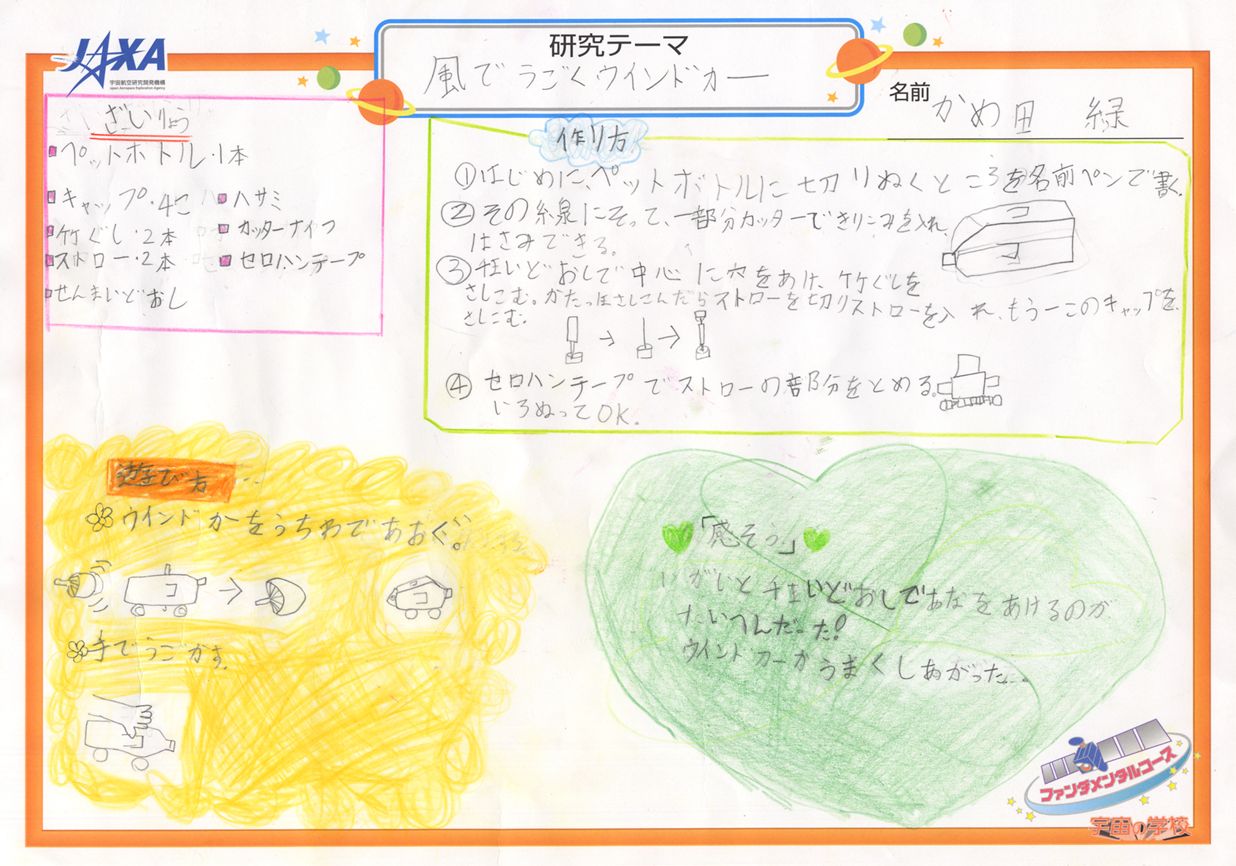 JAXA
宇宙航空研究開発機構
Japan Aerospace Exploration Agency
研究テーマ
風でうごくウインドカー
名前
かめ田 緑
ざいりょう
ペットボトル・1本
キャップ・4こ
竹ぐし・2本
ストロー・2本
せんまいどおし
ハサミ
カッターナイフ
セロハンテープ
作り方
①はじめに、ペットボトルに切りぬくところを名前ペンで書く。
②その線にそって、一部分カッターできりこみを入れ、
はさみできる。
③千まいどおしで中心に穴をあけ、竹ぐしを
さしこむ。かたっぽさしこんだらストローを切りストローを入れ、もう一このキャップを、
さしこむ。
④セロハンテープでストローの部分をとめる。
いろぬってOK.
遊び方
ウインドカーをうちわであおぐ。
コ
コ
手でうごかす。
「感そう」
いがいと千まいどおしであなをあけるのが
たいへんだった!
ウインドカーがうまくしあがった…。
ファンダメンタルコース
宇宙の学校